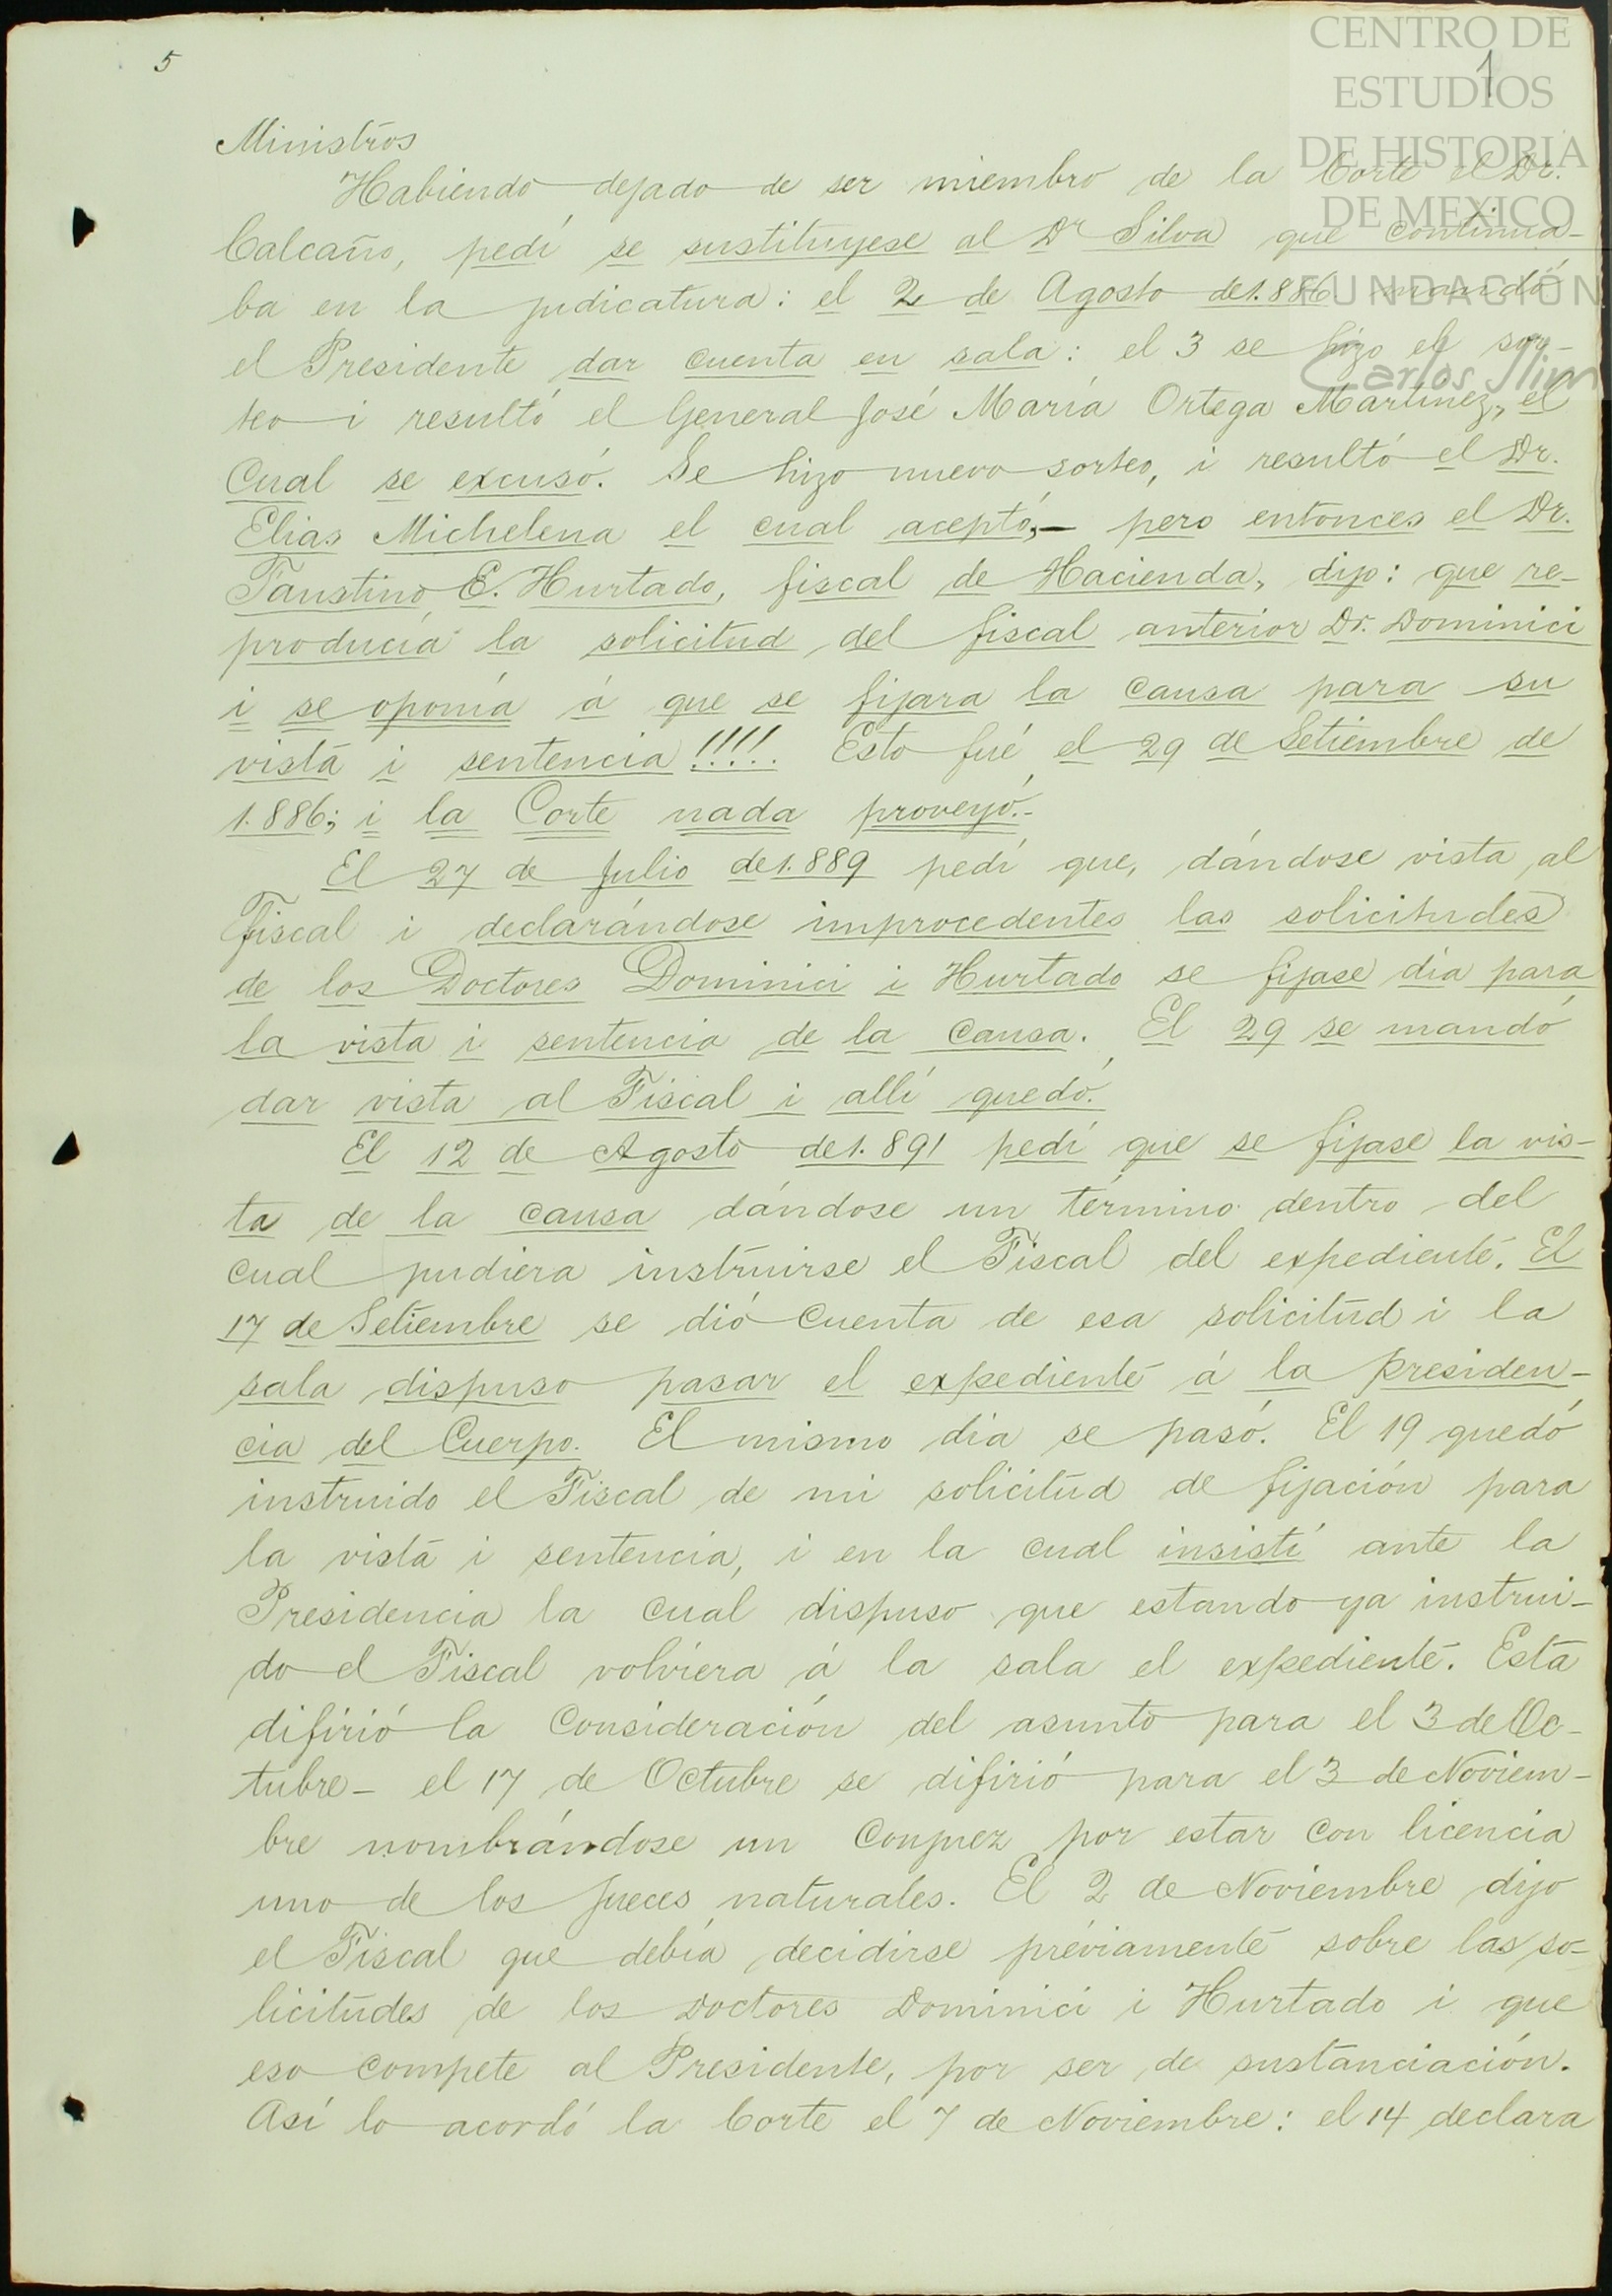 5
1
CENTRO DE
ESTUDIOS
DE HISTORIA
DE MEXICO
FUNDACIÓN
Carlos Slim
Ministros
Habiendo dejado de ser miembro de la Corte el Dr.
Calcaño, pedí se sustituyese al Dr Silva que continua-
ba en la judicatura: el 2 de Agosto de 1.886 mandó
el Presidente dar cuenta en sala: el 3 se hizo el sor-
teo i resultó el General José María Ortega Martínez, el
cual se excusó. Se hizo nuevo sorteo, i resultó el Dr.
Elias Michelena el cual aceptó,— pero entonces el Dr.
Faustino E. Hurtado, fiscal de Hacienda, dijo: que re-
producía la solicitud del fiscal anterior Dr. Dominici
i se oponía á que se fijara la causa para su
vista i sentencia!!!!. Esto fué el 29 de Setiembre de
1.886; i la Corte nada proveyó.-
El 27 de Julio de 1.889 pedí que, dándose vista al
Fiscal i declarándose improcedentes las solicitudes
de los Doctores Dominici i Hurtado se fijase dia para
la vista i sentencia de la causa. El 29 se mandó
dar vista al Fiscal i allí quedó.
El 12 de Agosto de 1.891 pedí que se fijase la vis-
ta de la causa dándose un término dentro del
cual pudiera instruirse el Fiscal del expediente. El
17 de Setiembre se dió cuenta de esa solicitud i la
sala dispuso pasar el expediente á la presiden-
cia del Cuerpo. El mismo dia se pasó. El 19 quedó
instruido el Fiscal de mi solicitud de fijación para
la vista i sentencia, i en la cual insistí ante la
Presidencia la cual dispuso que estando ya instrui-
do el Fiscal volviera á la sala el expediente. Esta
difirió la consideración del asunto para el 3 de Oc-
tubre - el 17 de Octubre se difirió para el 3 de Noviem-
bre nombrándose un conjuez por estar con licencia
uno de los jueces naturales. El 2 de Noviembre dijo
el Fiscal que debía decidirse préviamente sobre las so-
licitudes de los Doctores Dominici i Hurtado i que
eso compete al Presidente, por ser de sustanciación.
Así lo acordó la Corte el 7 de Noviembre: el 14 declara